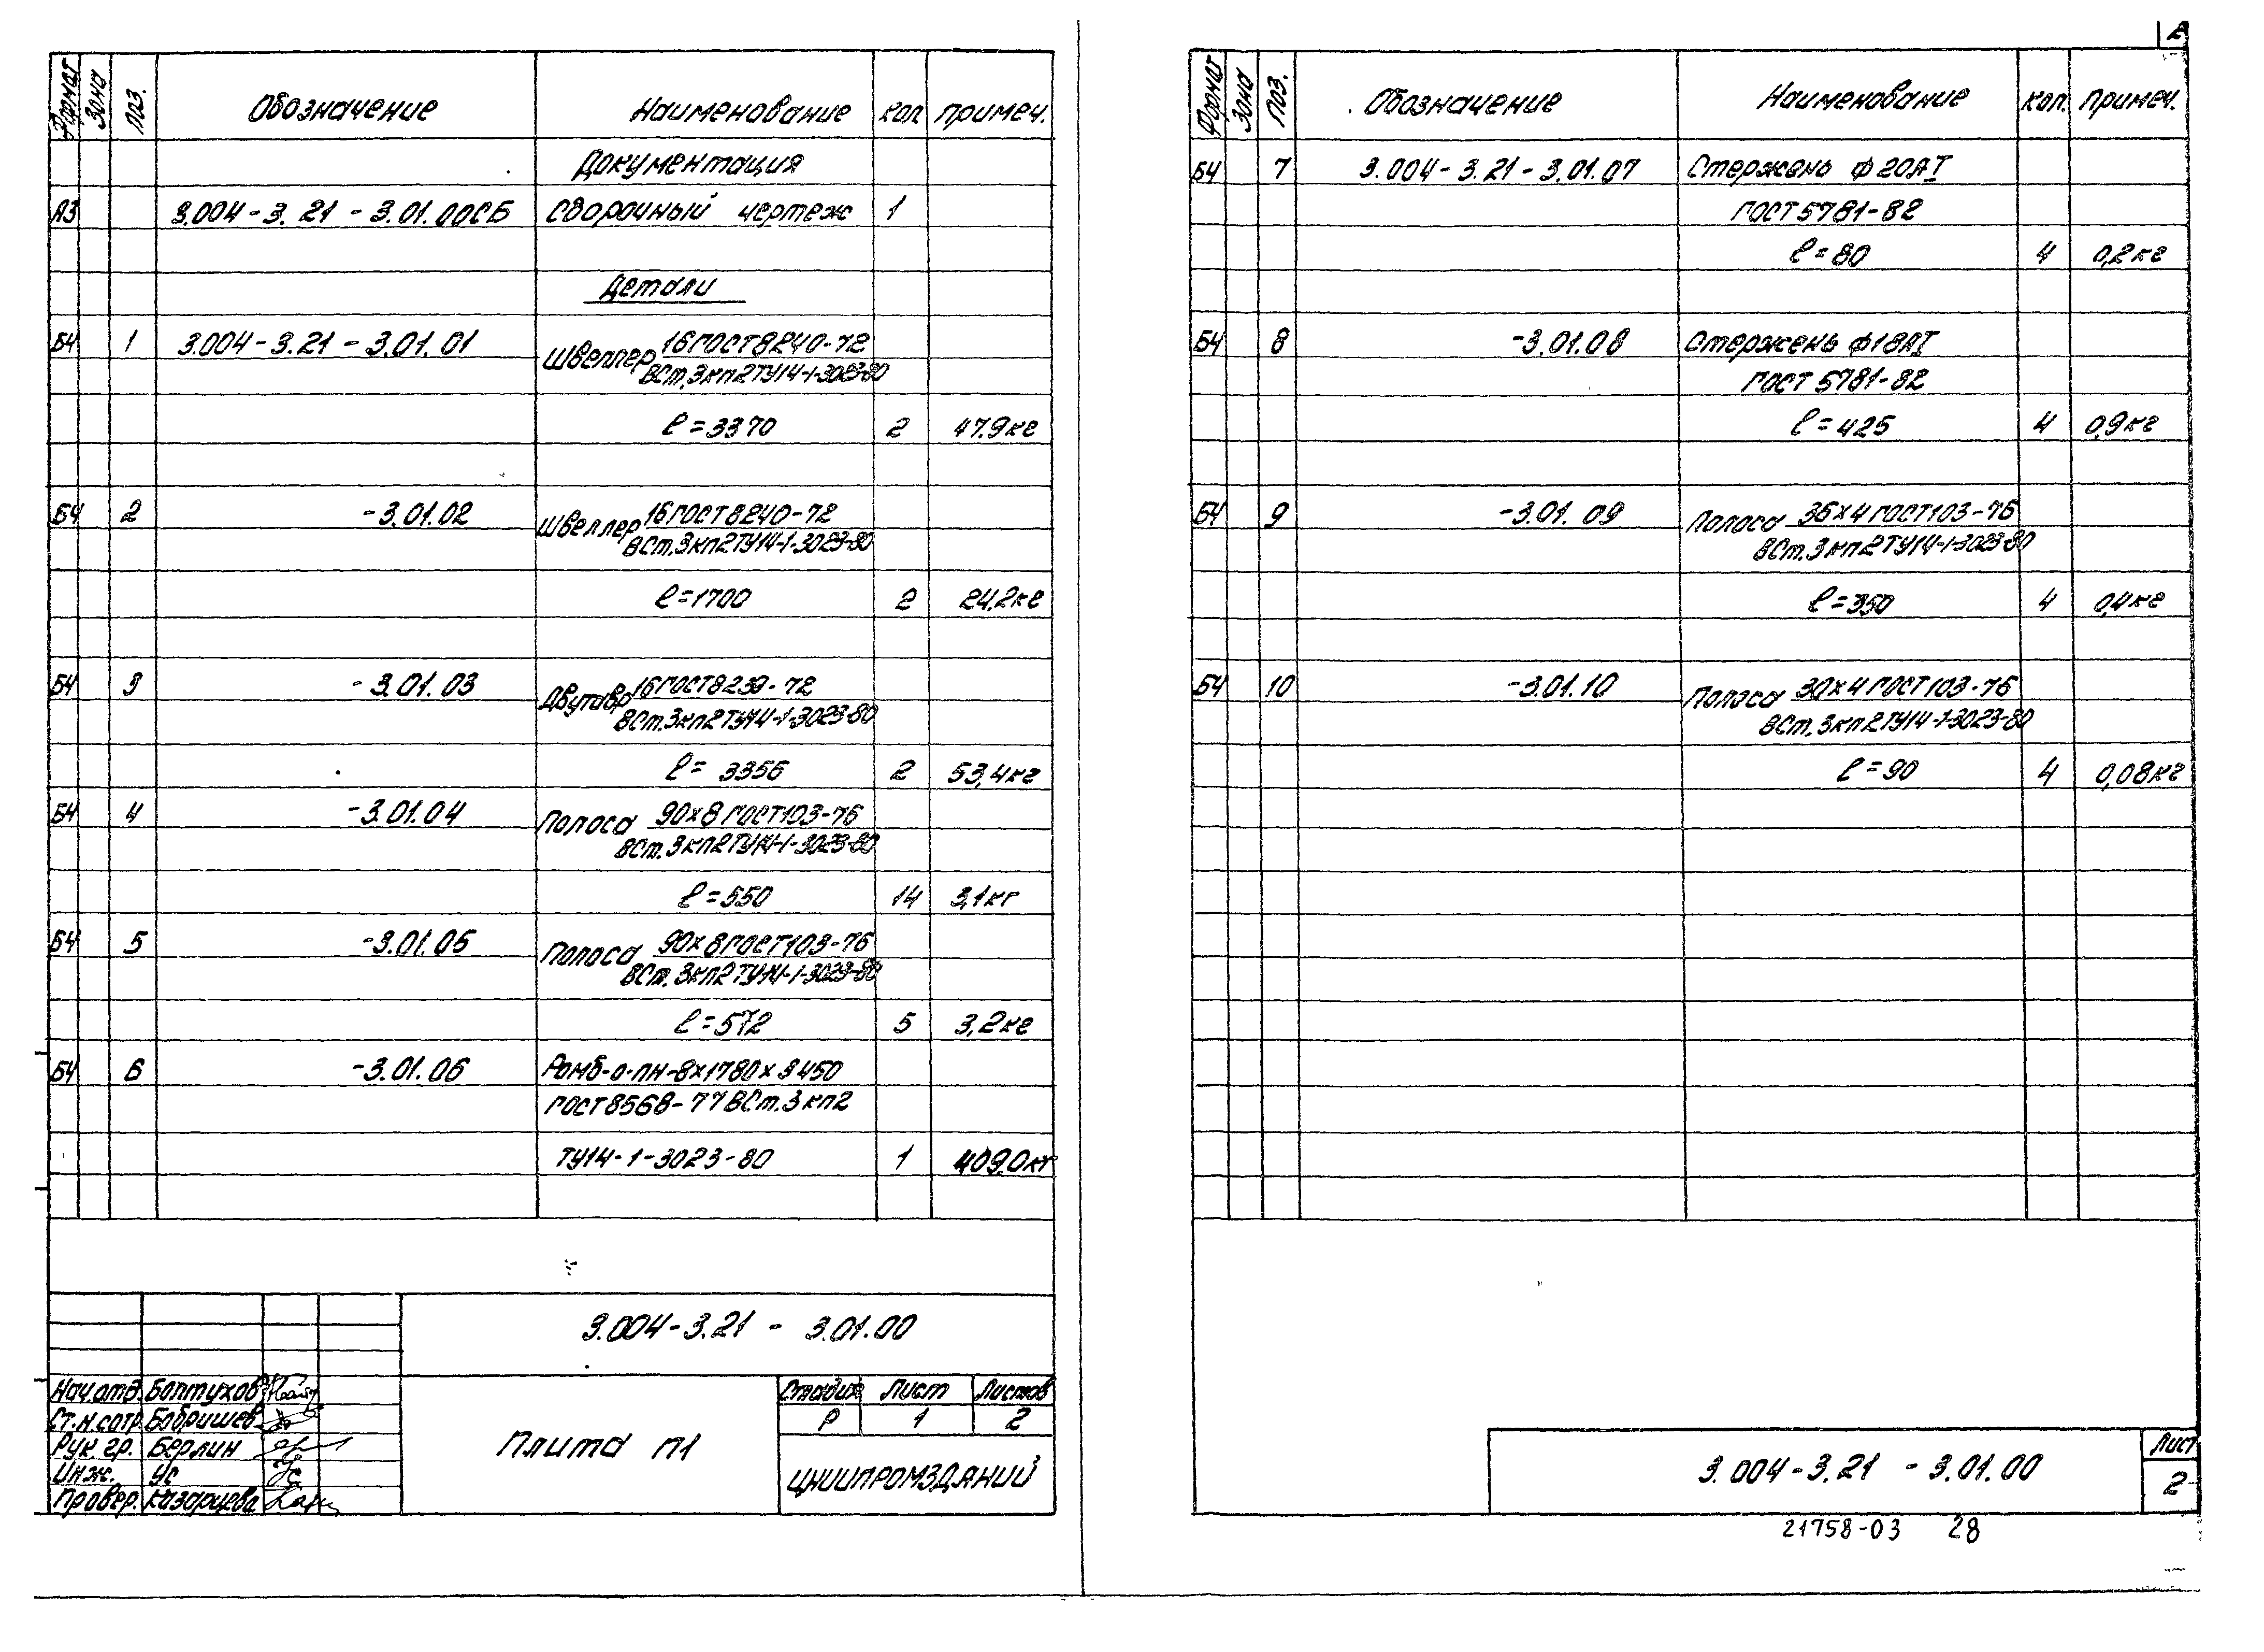 Формат Зона Поз. Обозначение Наименование Кол Примеч.
Документация
А3 3.004-3.21-3.01.00СБ Сборочный чертеж 1
Детали
Б4 1 3.004-3.21-3.01.01 Швеллер 16 ГОСТ 8240-72
ВСт.3кп2 ТУ14-1-3023-80
ℓ=3370 2 47.9кг
Б4 2 -3.01.02 Швеллер 16 ГОСТ 8240-72
ВСт.3кп2 ТУ14-1-3023-80
ℓ=1700 2 24,2кг
Б4 3 -3.01.03 Двутавр 16 ГОСТ 8239-72
ВСт.3кп2 ТУ14-1-3023-80
ℓ=3356 2 53,4кг
Б4 4 -3.01.04 Полоса 90×8 ГОСТ 103-76
ВСт.3кп2 ТУ14-1-3023-80
ℓ=550 14 3,1кг
Б4 5 -3.01.05 Полоса 90×8 ГОСТ 103-76
ВСт.3кп2 ТУ14-1-3023-80
ℓ=572 5 3,2кг
Б4 6 -3.01.06 Ромб-О-ПН-8×1780×3450
ГОСТ 8568-77 ВСт.3кп2
ТУ14-1-3023-80 1 409.0кг
3.004-3.21 - 3.01.00
Нач.отд. Болтухов
Ст.н.сотр. Бобришев
Рук.гр. Берлин
Инж. Ус
Провер. Казарцева
Плита П1
Стадия Лист Листов
Р 1 2
ЦНИИПРОМЗДАНИЙ
2
Формат Зона Поз. Обозначение Наименование Кол. Примеч.
Б4 7 3.004-3.21-3.01.07 Стержень ф20АI
ГОСТ 5781-82
ℓ=80 4 0,2кг
Б4 8 -3.01.08 Стержень ф18АI
ГОСТ 5781-82
ℓ=425 4 0,9кг
Б4 9 -3.01.09 Полоса 36×4 ГОСТ 103-76
ВСт.3кп2 ТУ14-1-3023-80
ℓ=350 4 0,4кг
Б4 10 -3.01.10 Полоса 30×4 ГОСТ 103-76
ВСт.3кп2 ТУ14-1-3023-80
ℓ=90 4 0,08кг
3.004-3.21 -3.01.00
Лист
2
21758-03 28